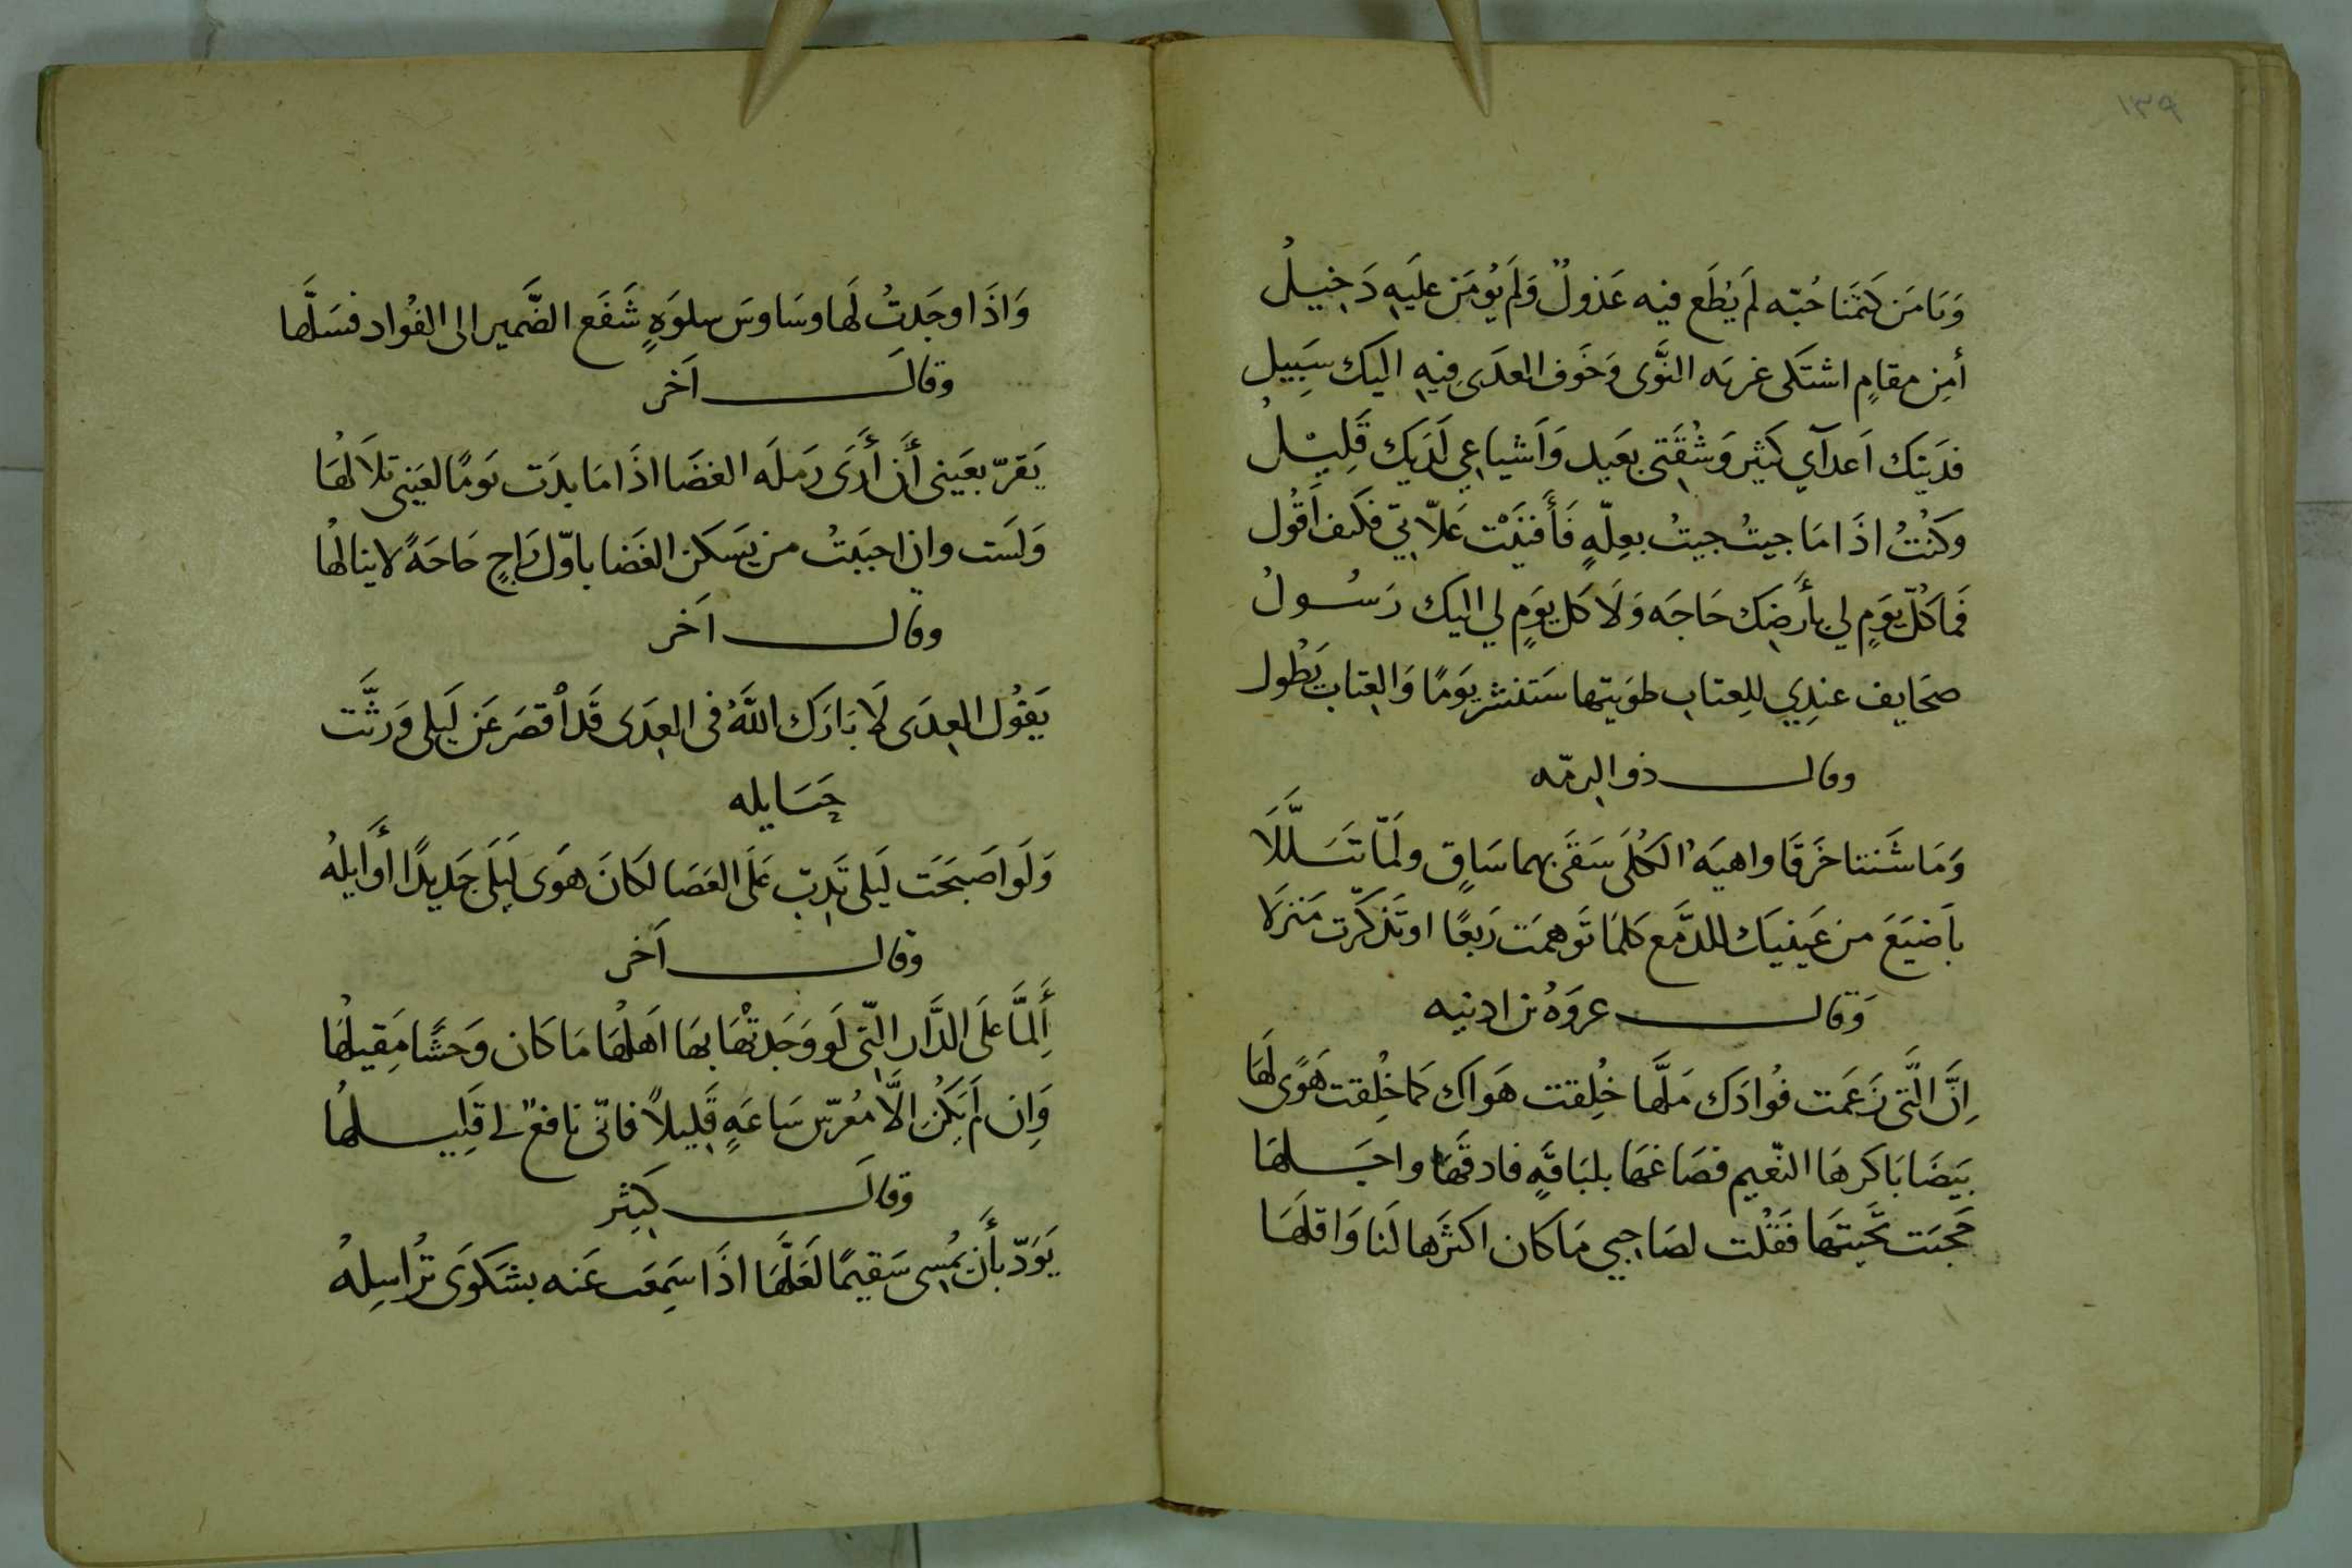 ١٣٩
وَيَا مَن كَتَمنَا حُبّه لَم يُطَع فيه عَذولٌ وَلَم يُومَن عليَهِ دَخيلُ
أمِن مقامٍ اشتكى غربَه النَّوى وَخَوف العدَى فيهِ اليك سَبِيل
فدَيتك اَعدآي كَثير وَشُقَتى بعَيد وَاَشياعي لَدَيك قَلِيْلُ
وَكنتُ اذَا مَا جيتُ جيتُ بعِلّهٍ فَأَفنَيْت عَلّاتي فكَيف اَقُول
فَمَا كُلّ يوَمٍ لي بأَرضِك حَاجَه وَلَا كل يوَمٍ لي اليك رَسُولُ
صحَايف عندِي للِعتاب طوَيتها سَتنشر يوَمًا وَالعِتاب يَطُول
وقال ذو الرمّه
وَمَا شَنتا خَرقَا واهيَه الكُلَى سَقَى بهما سَاقٍ ولَمّا تَبَلَّلَا
باَضيَعَ من عَينيَك للدَّمع كلمَا تَوهمَت رَبعًا او تَذكَرّت مَنزلَا
وَقال عروَهُ بن اذينه
اِنَّ الَّتى زَعَمت فُوادَك مَلَّها خُلِقت هَوَاك كما خُلِقت هَوًى لَهَا
بَيَضَا بَاكرهَا النّعيم فصَاغهَا بلبَاقَهٍ فادقَّهَا واجَلهَا
حَجبَت تَحَيتَهَا فَقُلْت لصَاحِبي مَا كان اكثَرها لَنَا وَاقلهَا
وَاذَا وجَدتُ لَها وسَاوسَ سلوَهٍ شَفَع الضَّمير الى الفُواد فسَلَّها
وقالَ اَخر
يَقرّ بعَيني أَن أَرَى رَملَه الغضَا اذَا مَا بدَت يَومًا لعَيني تلاَلهَا
وَلَست وان احببَتُ من يَسكن الغَضا باوّل رَاجٍ حَاجَهً لا ينالهُا
وقال اَخر
يَقوُل العِدَى لَا بَارَك اللَّهُ فى العِدَى قَد اْقصَر عَن لَيَلى وَرثَّت
حَبَايله
وَلَو اَصبَحَت لَيَلى تَدِبّ عَلَى العَصَا لكَانَ هَوَى لَيلَى جَديِدًا أَوَايلهُ
وقال اَخر
أَلِمَّا عَلَى الدَّار الّتي لَو وَجَدتُهَا بهَا اَهلهُا مَا كَان وَحشًا مَقِيلهَا
وَاِن لَم يَكُن الَّا مُعرّس سَاعَهٍ قَلِيلاً فانّي نافع لي قَلِيلهُا
وَقالَ كثِيَر
يَوَدّ بأَن يمُسِى سَقيمًا لعَلّهَا اذَا سَمِعَت عَنه بشَكوَى تُراسِلهُ